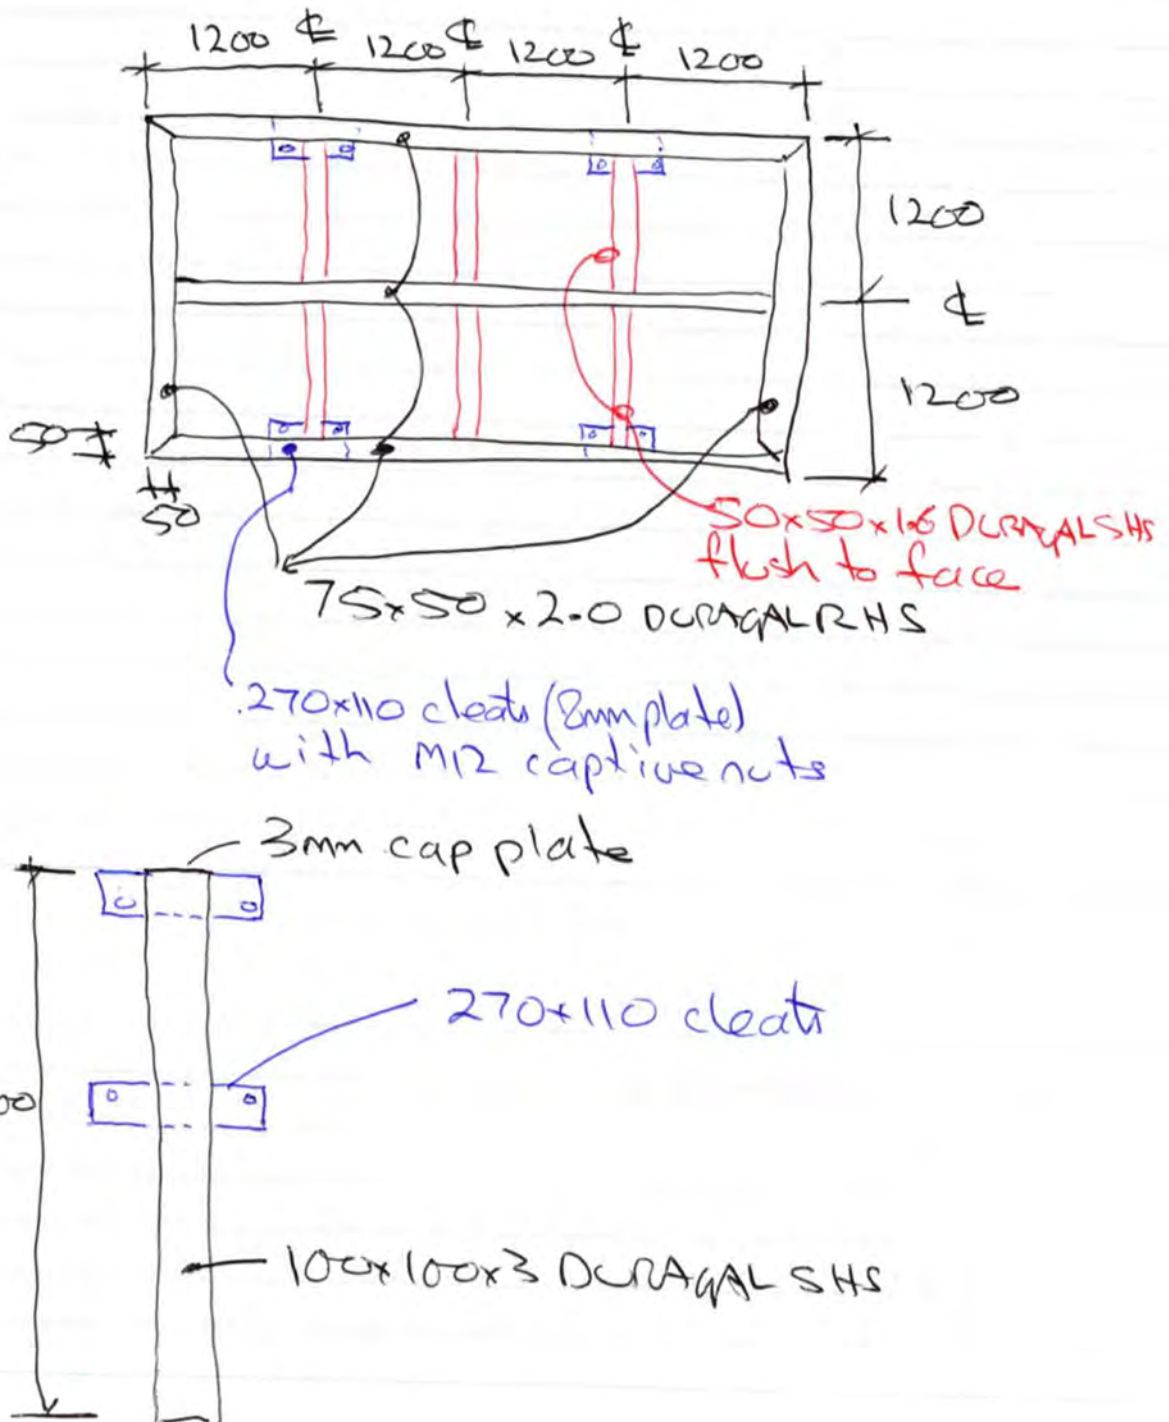 1200 ℄ 1200 ℄ 1200 ℄ 1200
1200
℄
1200
50
50
50x50x1.6 DURAGAL SHS
flush to face
75x50x2.0 DURAGAL RHS
270x110 cleats (8mm plate)
with M12 captive nuts
3mm cap plate
270x110 cleats
00
100x100x3 DURAGAL SHS